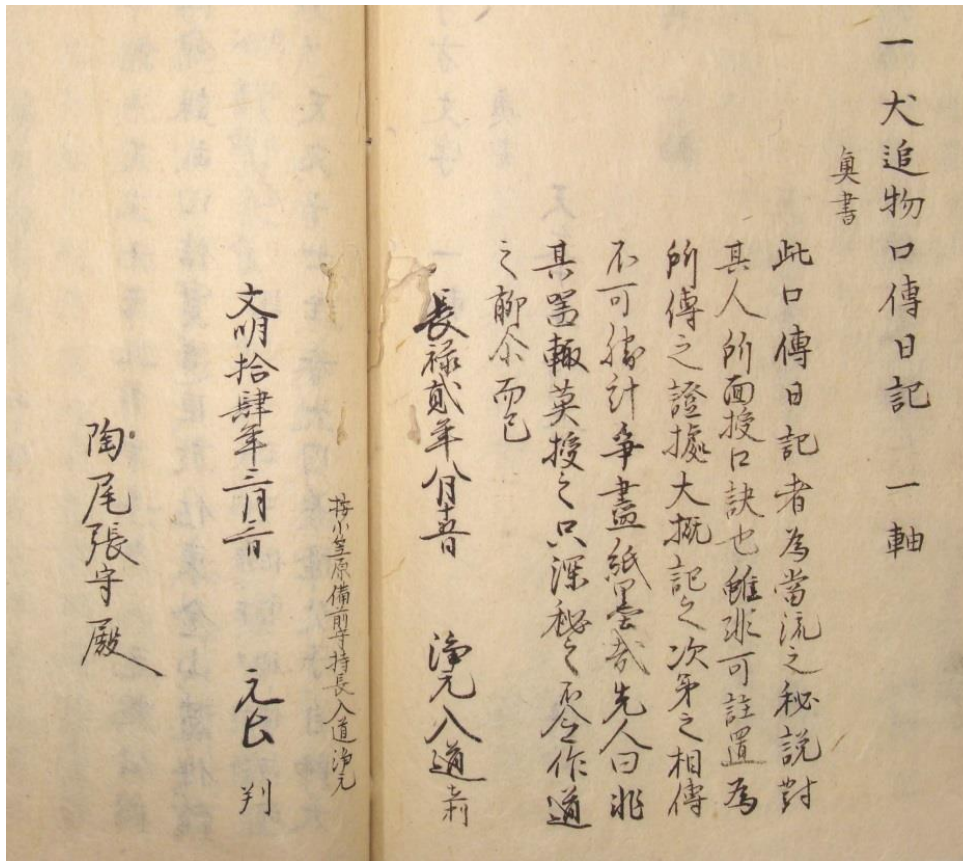 一犬追物口傳日記　一軸
奥書
此口傳日記者為當流之秘説對
其人所面授口訣也雖非可註置為
所傳之證據大概記之次第之相傳
不可勝計爭盡紙墨哉先人曰非
其器輙莫授之只深秘之不令作道
之聊尒而已
長禄貳年八月十五日　浄元入道
按小笠原備前守持長入道浄元
文明拾肆年三月三日　元長　判
陶尾張守殿